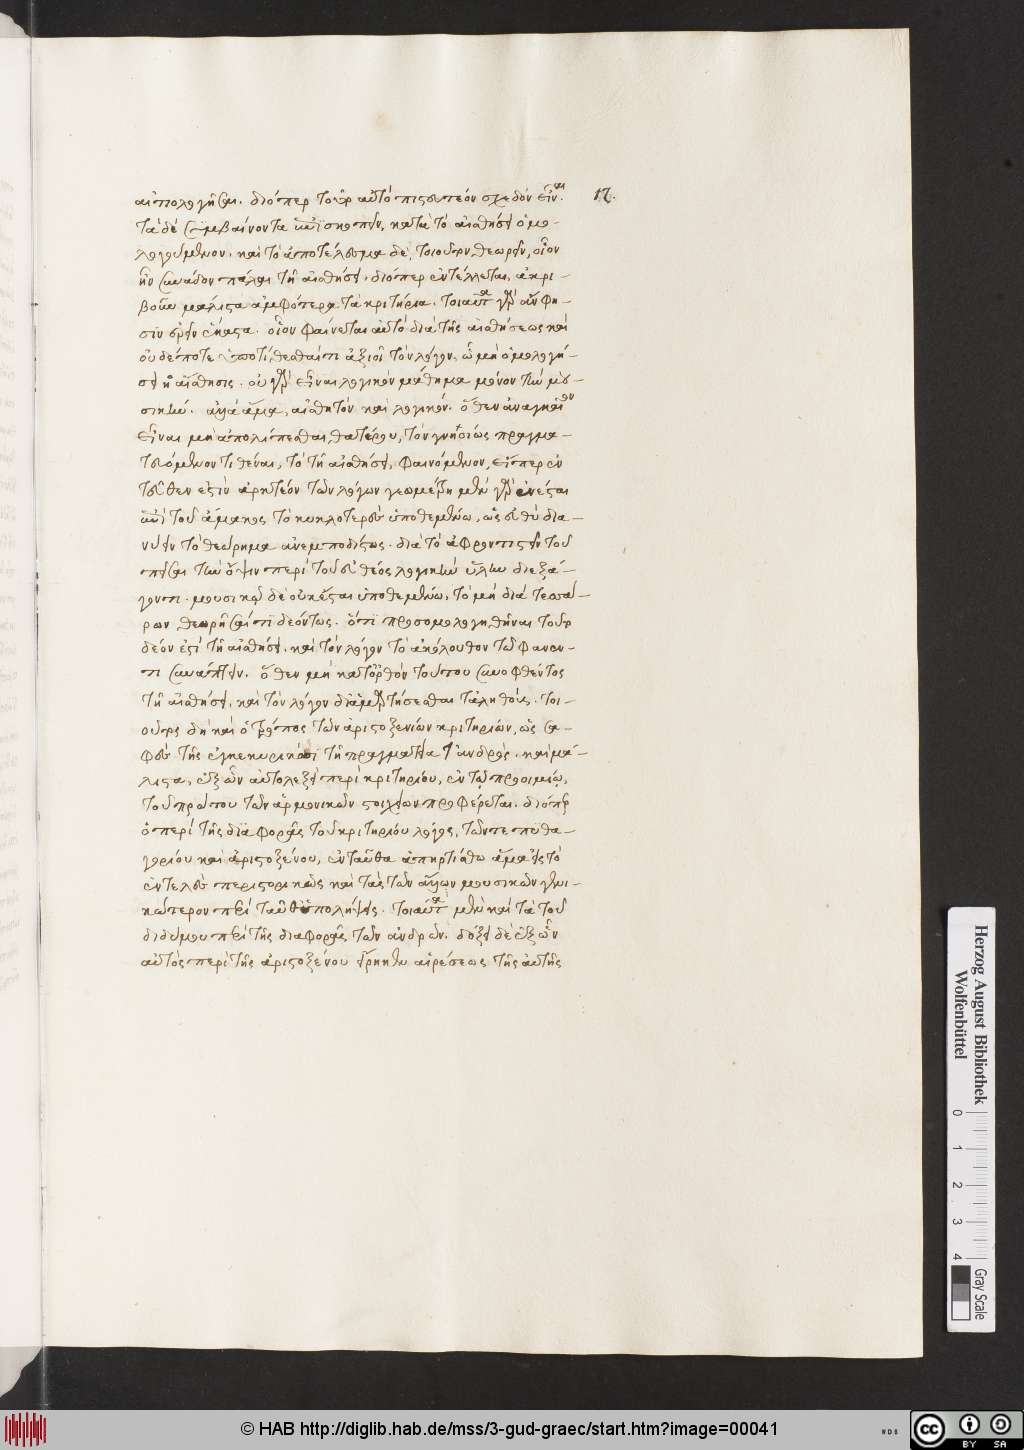 αι πολογῆσαι. διόπερ τοῦτ αὐτό πιστευτέον σχεδόν εἶν αι
τὰ δὲ συμβαίνοντα ἐπισκοπεῖν, κατὰ τὸ αἰσθήσει ὁμο-
λογούμενον. καὶ τὸ ἀποτέλεσμα δὲ, τοιοῦτον θεωρεῖν, οἷον
ἦν συνᾶδον πάλαι τῇ αἰσθήσει. διόπερ ἐντέλλεται, ἀκρι-
βοῦν μάλιστα ἀμφότερα τὰ κριτήρια. τοιαῦτα γὰρ ἄν φη-
σὶν εὑρεῖν ἕκαστα. οἷον φαίνεται αὐτὸ διὰ τῆς αἰσθήσεως καὶ
οὐδέποτε ὑποτίθεσθαί τι ἀξιοῖ τὸν λόγον, ὃ μὴ ὁμολογή-
σει ἡ αἴσθησις. οὐ γὰρ εἶναι λογικὸν μάθημα μόνον τὴν μου-
σικήν. ἀλλὰ ἅμα, αἰσθητὸν καὶ λογικόν. ὅθεν ἀναγκαῖον
εἶναι μὴ ἀπολείπεσθαι θατέρου, τὸν γνησίως πραγμα-
τευόμενον τιθέναι, τὸ τῇ αἰσθήσει φαινόμενον, εἴπερ ἐν
τεῦθεν ἐστὶν ἀρκτέον τῶν λόγων γεωμέτρῃ μὲν γὰρ ἐνέσται
ἐπὶ τοῦ ἄμακος τὸ κυκλοτερὲς ὑποθεμένω, ὡς εὐθὺ δια-
νύειν τὸ θεώρημα ἀνεμποδίστως. διὰ τὸ ἀφροντιστεῖν τοῦ
πεῖσαι τὴν ὄψιν περὶ τοῦ εὐθέος λογικὴν ὕλην διεξά-
γοντι. μουσικῷ δὲ οὐκ ἔσται ὑποθεμένω, τὸ μὴ διὰ τεσσά-
ρων θεωρῆσαί τι δεόντως. ὅτι προσομολογηθῆναι τοῦτο
δέον ἐστὶ τῇ αἰσθήσει. καὶ τὸν λόγον τὸ ἀκόλουθον τῷ φανέν-
τι συνάπτειν. ὅθεν μὴ κατορθὸν τούτου συνοφθέντος
τῇ αἰσθήσει, καὶ τὸν λόγον διαμαρτήσεσθαι τἀληθοῦς. τοι-
οῦτος δὴ καὶ ὁ τρόπος τῶν ἀριστοξενίων κριτηρίων, ὡς σα-
φὲς τῆς ἐγκεκυρικόσι τῇ πραγματεία τἀνδρός. καὶ μά-
λιστα, ἐξ ὧν αὐτολεξεὶ περὶ κριτηρίου, ἐν τῷ προοιμίῳ,
τοῦ πρώτου τῶν ἁρμονικῶν στοιχείων προφέρεται. διόπερ
ὁ περὶ τῆς διαφορᾶς τοῦ κριτηρίου λόγος, τῶν τε πυθα-
γορίου καὶ ἀριστοξένου, ἐνταῦθα ἀπηρτίσθω ἅμα εἰς τὸ
ἐντελὲς περιστορικῶς καὶ τὰς τῶν ἄλλων μουσικῶν γενι-
κώτερον περὶ ταῦθ ὑπολήψεις. τοιαῦτα μὲν καὶ τὰ τοῦ
διδύμου περὶ τῆς διαφορᾶς τῶν ἀνδρῶν. δόξει δὲ ἐξ ὧν
αὐτὸς περὶ τῆς ἀριστοξένου εἴρηκεν αἱρέσεως τῆς αὐτῆς
17.
Herzog August Bibliothek
Wolfenbüttel
0 1 2 3 4
Gray Scale
© HAB http://diglib.hab.de/mss/3-gud-graec/start.htm?image=00041
WDB
CC BY SA